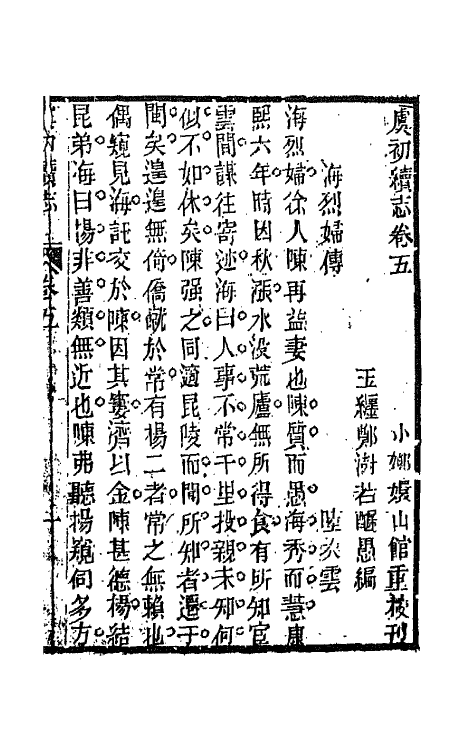 虞初續志卷五
小嫏嬛山館重校刊
玉纒鄭澍若醒愚編
海烈婦傳
陸次雲
海烈婦徐人陳再益妻也陳質而愚海秀而慧康
熙六年時因秋漲水没荒廬無所得食有所知官
雲間謀往寄迹海曰人事不常千里投親未知何
似不如休矣陳强之同適昆陵而聞所知者遷于
閩矣遑遑無倚僑於常有楊二者常之無賴也
偶窺見海託交於陳因其窶濟以金陳甚德楊結
昆弟海曰楊非善類無近也陳弗聽楊窺伺多方